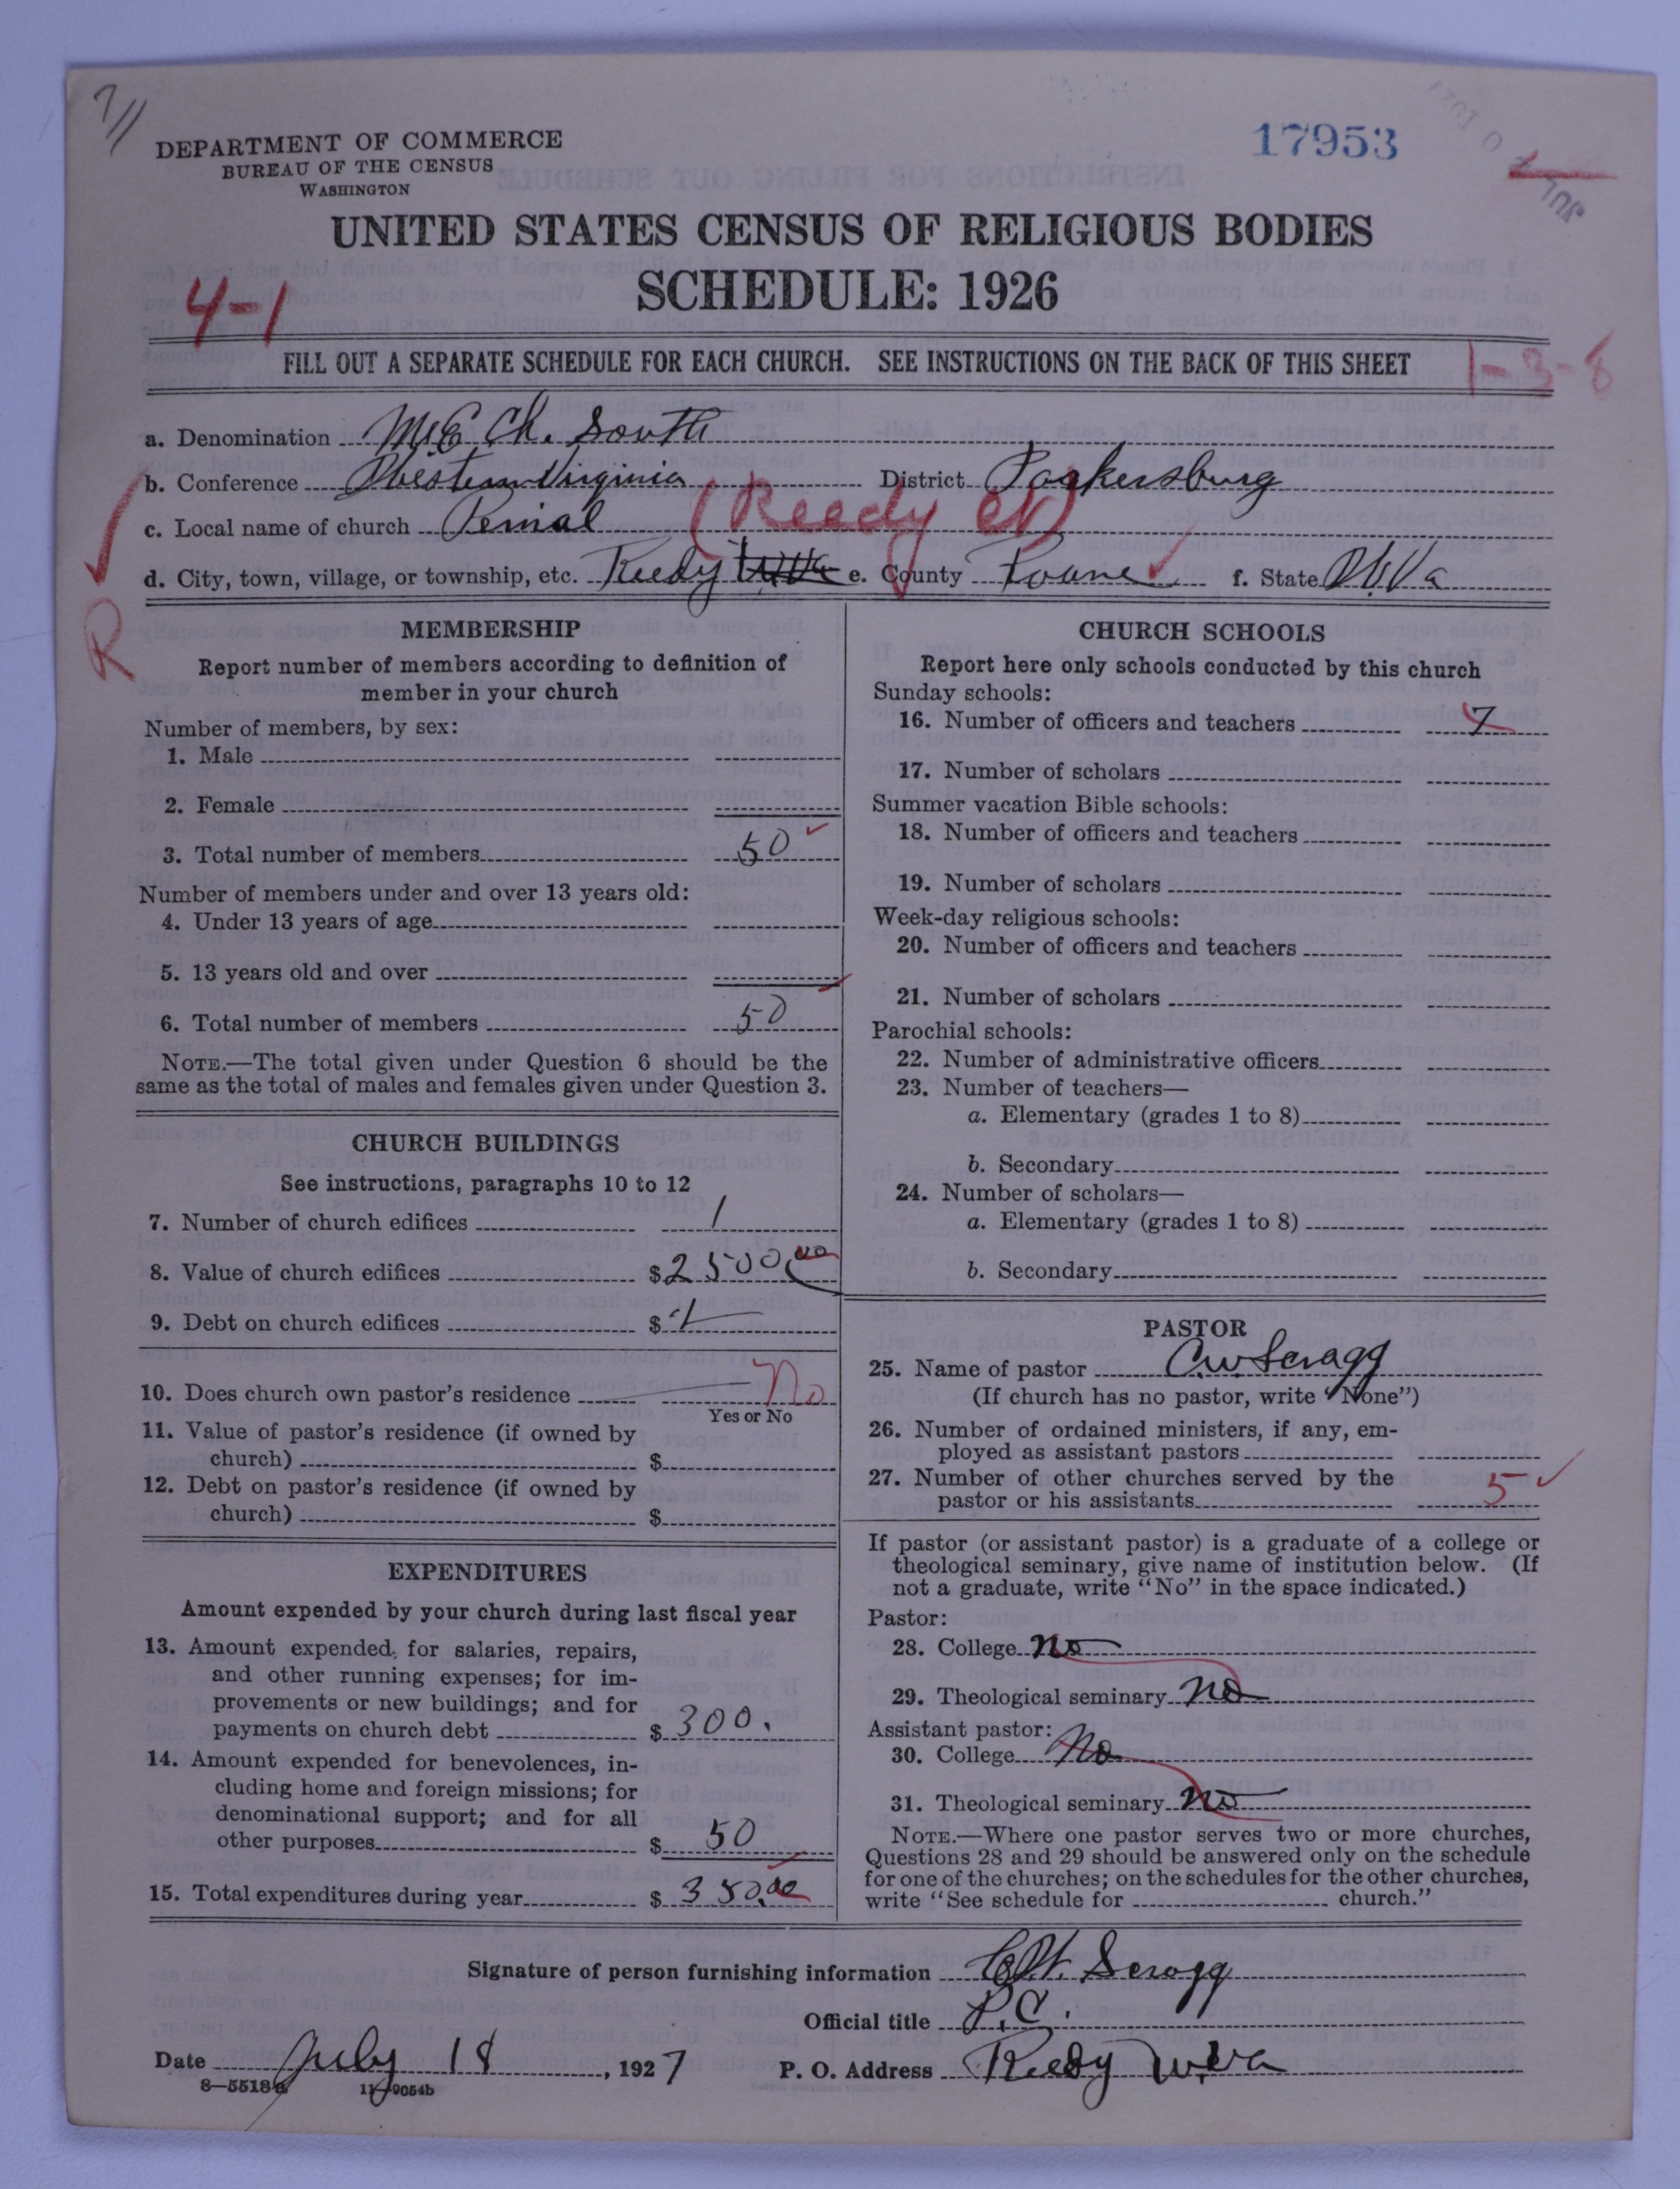 7//
DEPARTMENT OF COMMERCE
BUREAU OF THE CENSUS
WASHINGTON
17953
UNITED STATES CENSUS OF RELIGIOUS BODIES
SCHEDULE: 1926
4-1
FILL OUT A SEPARATE SCHEDULE FOR EACH CHURCH. SEE INSTRUCTIONS ON THE BACK OF THIS SHEET
1-3-8
a. Denomination M.E. Ch. South
b. Conference Western Virginia District Parkersburg
c. Local name of church Penial (Reedy Ct)
d. City, town, village, or township, etc. Reedy W.Va e. County Roane f. State W.Va
R
MEMBERSHIP
Report number of members according to definition of
member in your church
Number of members, by sex:
1. Male
2. Female
3. Total number of members 50
Number of members under and over 13 years old:
4. Under 13 years of age
5. 13 years old and over
6. Total number of members 50
NOTE.—The total given under Question 6 should be the
same as the total of males and females given under Question 3.
CHURCH BUILDINGS
See instructions, paragraphs 10 to 12
7. Number of church edifices 1
8. Value of church edifices $2500.00
9. Debt on church edifices $
10. Does church own pastor's residence No
Yes or No
11. Value of pastor's residence (if owned by
church) $
12. Debt on pastor's residence (if owned by
church) $
EXPENDITURES
Amount expended by your church during last fiscal year
13. Amount expended for salaries, repairs,
and other running expenses; for im-
provements or new buildings; and for
payments on church debt $ 300.
14. Amount expended for benevolences, in-
cluding home and foreign missions; for
denominational support; and for all
other purposes $ 50
15. Total expenditures during year $ 350.00
CHURCH SCHOOLS
Report here only schools conducted by this church
Sunday schools:
16. Number of officers and teachers 7
17. Number of scholars
Summer vacation Bible schools:
18. Number of officers and teachers
19. Number of scholars
Week-day religious schools:
20. Number of officers and teachers
21. Number of scholars
Parochial schools:
22. Number of administrative officers
23. Number of teachers—
a. Elementary (grades 1 to 8)
b. Secondary
24. Number of scholars—
a. Elementary (grades 1 to 8)
b. Secondary
PASTOR
25. Name of pastor C.W. Scragg
(If church has no pastor, write "None")
26. Number of ordained ministers, if any, em-
ployed as assistant pastors
27. Number of other churches served by the
pastor or his assistants 5
If pastor (or assistant pastor) is a graduate of a college or
theological seminary, give name of institution below. (If
not a graduate, write "No" in the space indicated.)
Pastor:
28. College no
29. Theological seminary no
Assistant pastor:
30. College No
31. Theological seminary no
NOTE.—Where one pastor serves two or more churches,
Questions 28 and 29 should be answered only on the schedule
for one of the churches; on the schedules for the other churches,
write "See schedule for church."
Signature of person furnishing information C.W. Scragg
Official title P.C.
Date July 18, 1927 P. O. Address Reedy W.Va
8—5518a 11—9054b